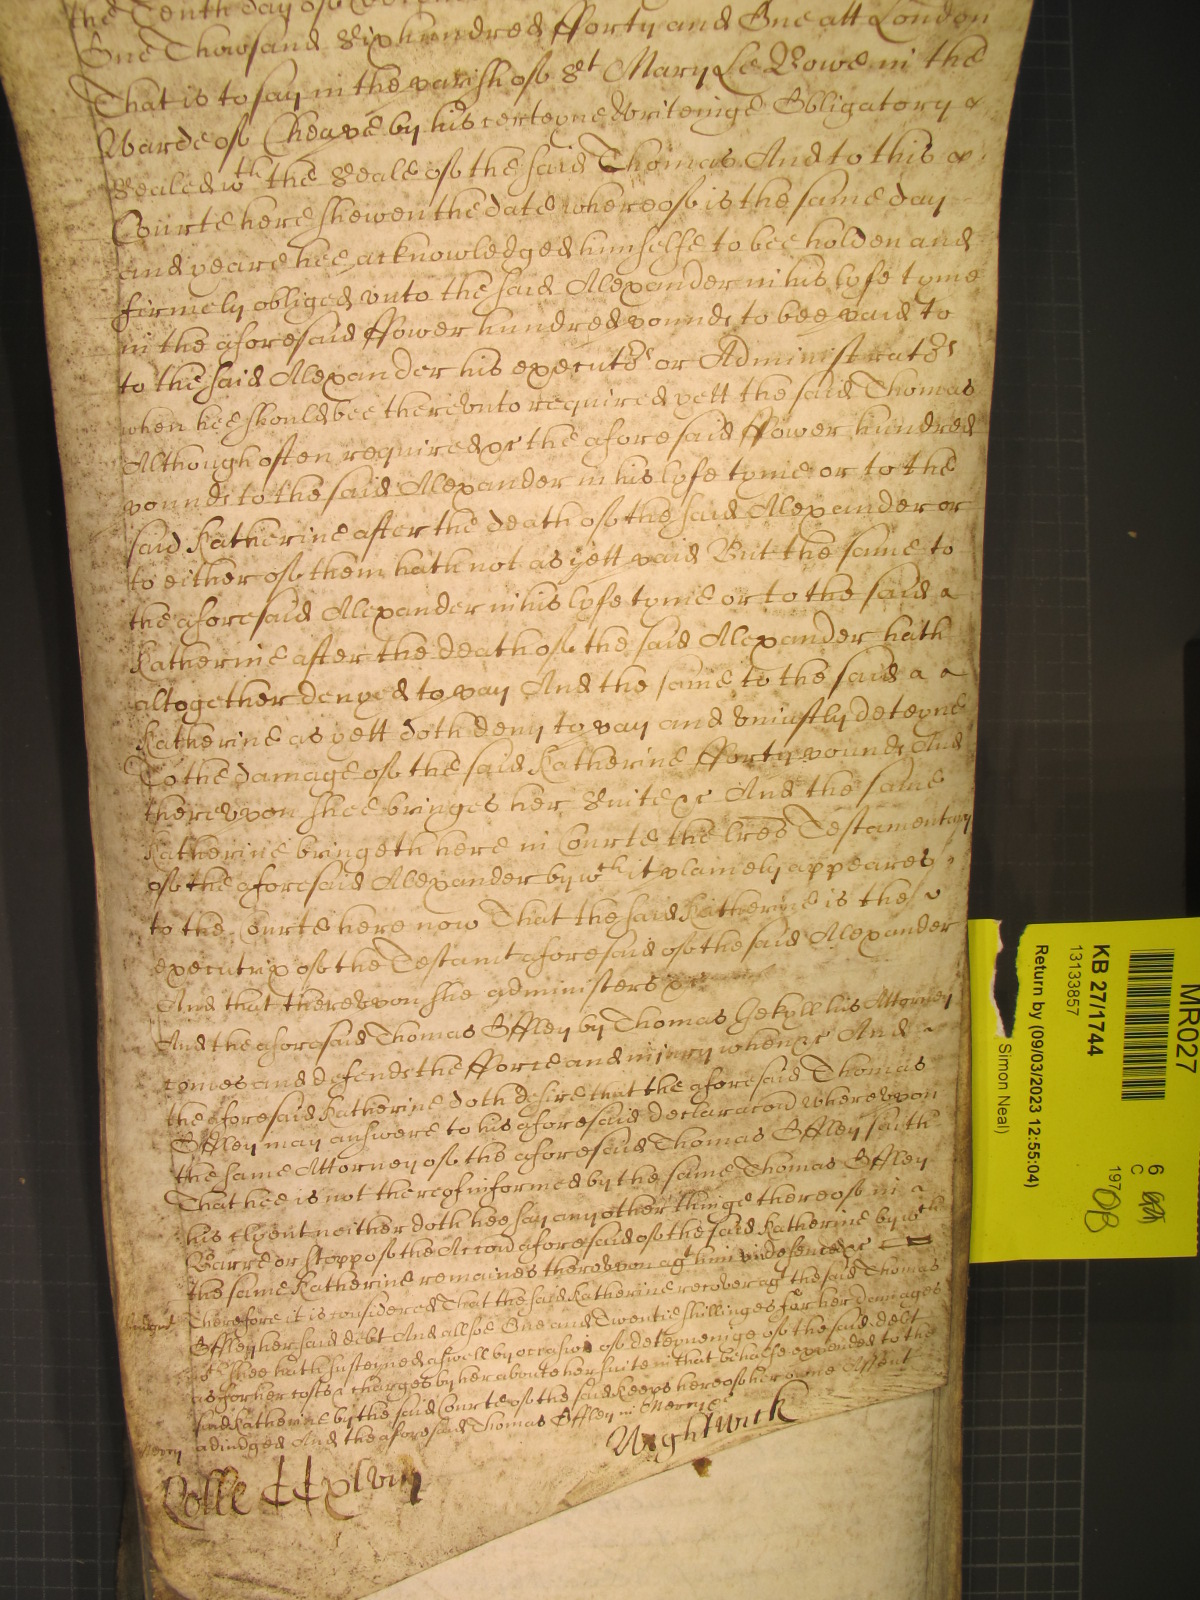 the Tenth day of
One Thowsand Sixhundred fforty and One att London
That is to say in the parish of St Mary Le Bowe in the
Warde of Cheape by his certeyne Writeinge Obligatory &
Sealed wth the Seale of the said Thomas And to this &
Courte here shewen the date whereof is the same day
and yeare hee acknowledged himselfe to bee holden and
firmely obliged vnto the said Alexander in his lyfe tyme
in the aforesaid ffower hundred pounds to bee paid to
to the said Alexander his executors or Administrators
when hee should bee therevnto required yett the said Thomas
Although often required &c the aforesaid ffower hundred
pounds to the said Alexander in his lyfe tyme or to the
said Katherine after the death of the said Alexander or
to either of them hath not as yett paid But the same to
the aforesaid Alexander in his lyfe tyme or to the said a
Katherine after the death of the said Alexander hath
altogether denyed to pay And the same to the said a a
Katherine as yett doth deny to pay and vniustly deteyne
To the damage of the said Katherine fforty pounds And
therevpon shee bringes her Suite &c And the same
Katherine bringeth here in Courte the lres Testamentary
of the aforesaid Alexander by wch it plainely appeares
to the Courte here now That the said Katherine is the
executrix of the Testamt aforesaid of the said Alexander
And that therevpon she administers &c
And the aforesaid Thomas Offley by Thomas Jekyll his Attorney
comes and defends the fforce and iniury when &c And a
the aforesaid Katherine doth desire that the aforesaid Thomas
Offley may answere to his aforesaid declaracon Wherevpon
the same Attorney of the aforesaid Thomas Offley saith
That hee is not thereof informed by the same Thomas Offley
his clyent neither doth hee say any other thinge thereof in a
Barre or stopp of the Accon aforesaid of the said Katherine by wch
the same Katherine remaines therevpon agt him vndefended &c
Iudgmt Therefore it is considered That the said Katherine recover agt the said Thomas
Offley her said debt And allsoe One and Twentie shillinges for her damages
wch shee hath susteyned aswell by occasion of deteyneinge of the said debt
as for her costs & charges by her aboute her suite in that behalfe expended to the
said Katherine by the said Courte of the said Keeps here of her owne Assent
Mercy adiudged And the aforesaid Thomas Offley in Mercy &c
Wightwick
Rolle CCxlviij
MR027
KB 27/1744
13133857
Return by (09/03/2023 12:55:04)
Simon Neal)
6
C
197